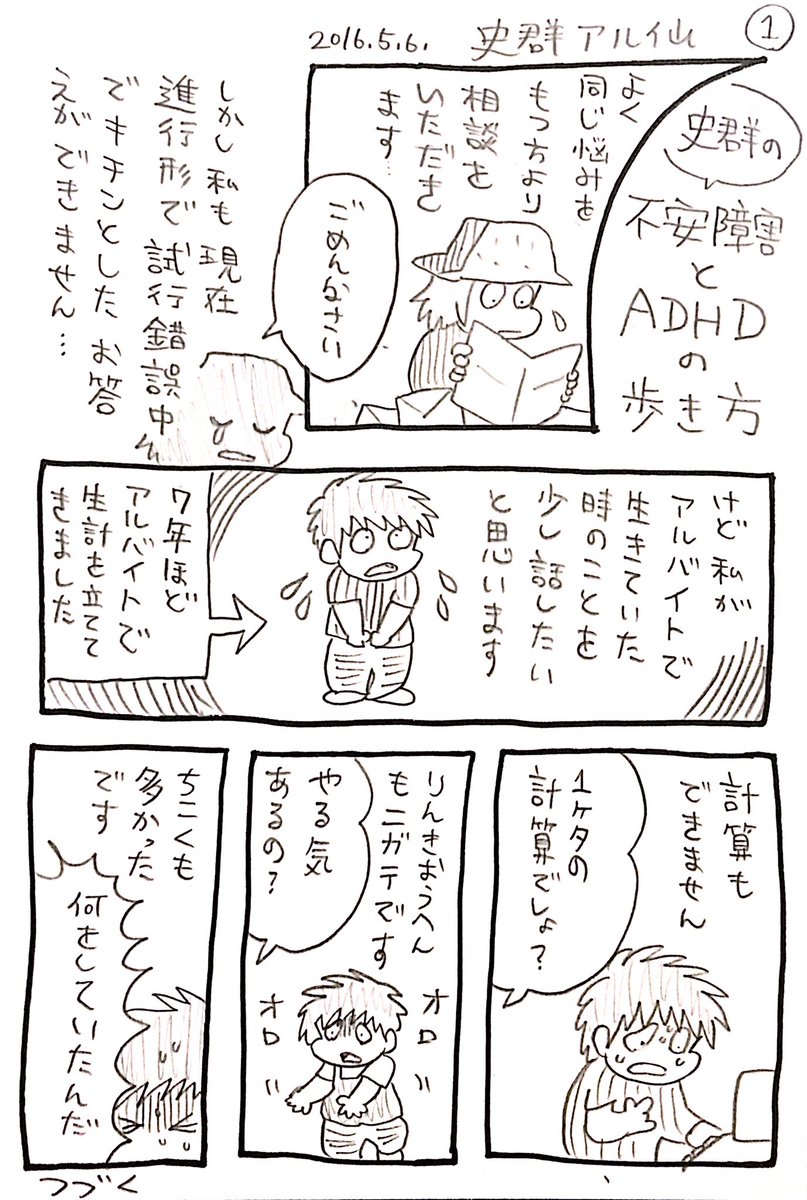 1
2016.5.6. 史群アルイ仙
史群の
不安障害
と
ADHD
の
歩き方
よく
同じ悩みを
もつ方より
相談を
いただき
ます…
ごめんなさい
しかし私も現在
進行形で試行錯誤中
でキチンとしたお答
えができません…
けど私が
アルバイトで
生きていた
時のことを
少し話したい
と思います
7年ほど
アルバイトで
生計を立てて
きました
計算も
できません
1ケタの
計算でしょ？
りんきおうへん
もニガテです
やる気
あるの？
オロ
オロ
ちこくも
多かった
です
何をしていたんだ
つづく